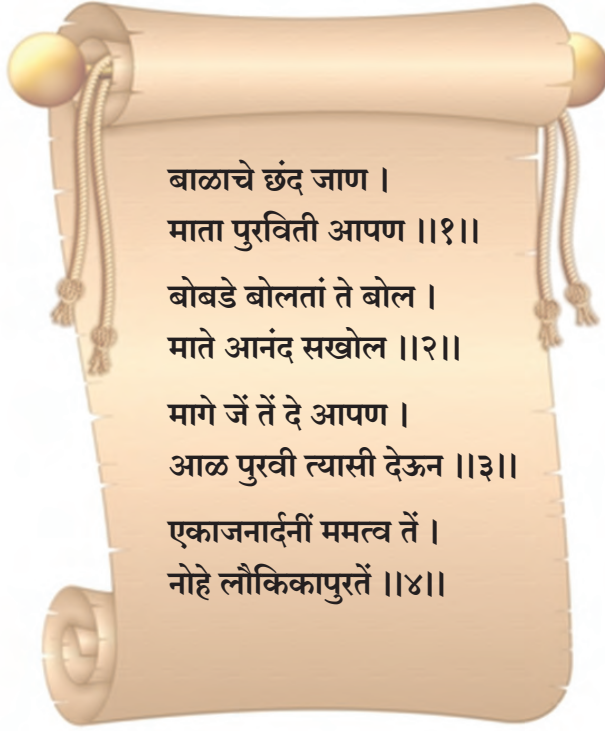 बाळाचे छंद जाण ।
माता पुरविती आपण ।।१।।
बोबडे बोलतां ते बोल ।
माते आनंद सखोल ।।२।।
मागे जें तें दे आपण ।
आळ पुरवी त्यासी देऊन ।।३।।
एकाजनार्दनीं ममत्व तें ।
नोहे लौकिकापुरतें ।।४।।